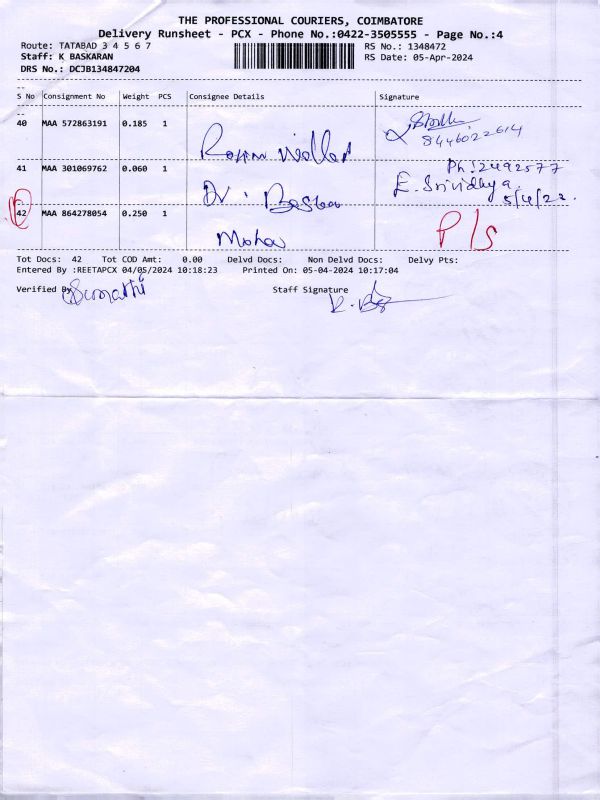 THE PROFESSIONAL COURIERS, COIMBATORE
Delivery Runsheet - PCX - Phone No.:0422-3505555 - Page No.:4
Route: TATABAD 3 4 5 6 7 RS No.: 1348472
Staff: K BASKARAN RS Date: 05-Apr-2024
DRS No.: DCJB134847204
S No Consignment No Weight PCS Consignee Details Signature
40 MAA 572863191 0.185 1
8446022614
41 MAA 301069762 0.060 1 Ph: 2492577
Dr. E. Srividhya
42 MAA 864278054 0.250 1 P/s
Mohan
Tot Docs: 42 Tot COD Amt: 0.00 Delvd Docs: Non Delvd Docs: Delvy Pts:
Entered By :REETAPCX 04/05/2024 10:18:23 Printed On: 05-04-2024 10:17:04
Verified By Sumathi Staff Signature